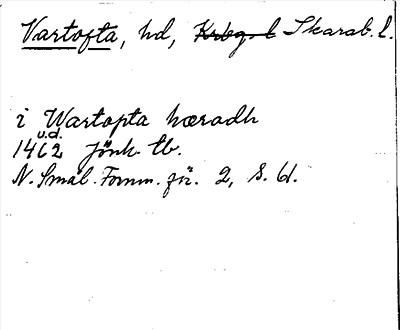 Vartofta, hd, Krbg. l Skarab. l.
i Wartopta hæradh
u.d.
1462 Jönk tb.
N. Smål. Fornm. för. 2, S. 61.